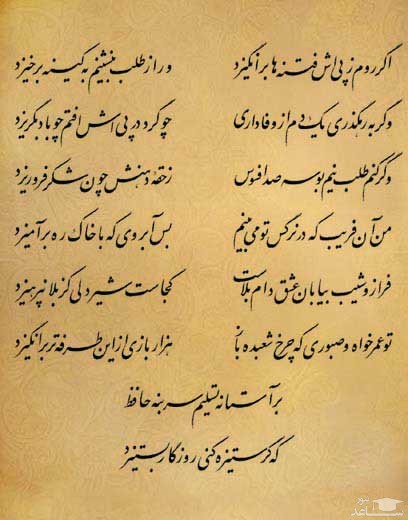 اگر روم ز پی اش فتنه ها برانگیزد ور از طلب بنشینم به کینه برخیزد
وگر به رهگذری یک دم از وفاداری چو گرد در پی اش افتم چو باد بگریزد
وگر کنم طلب نیم بوسه صد افسوس ز حقه دهنش چون شکر فرو ریزد
من آن فریب که در نرگس تو می بینم بس آبروی که با خاک ره برآمیزد
فراز و شیب بیابان عشق دام بلاست کجاست شیردلی کز بلا نپرهیزد
تو عمر خواه و صبوری که چرخ شعبده باز هزار بازی از این طرفه تر برانگیزد
بر آستانه تسلیم سر بنه حافظ
که گر ستیزه کنی روزگار بستیزد
ساعد نیوز